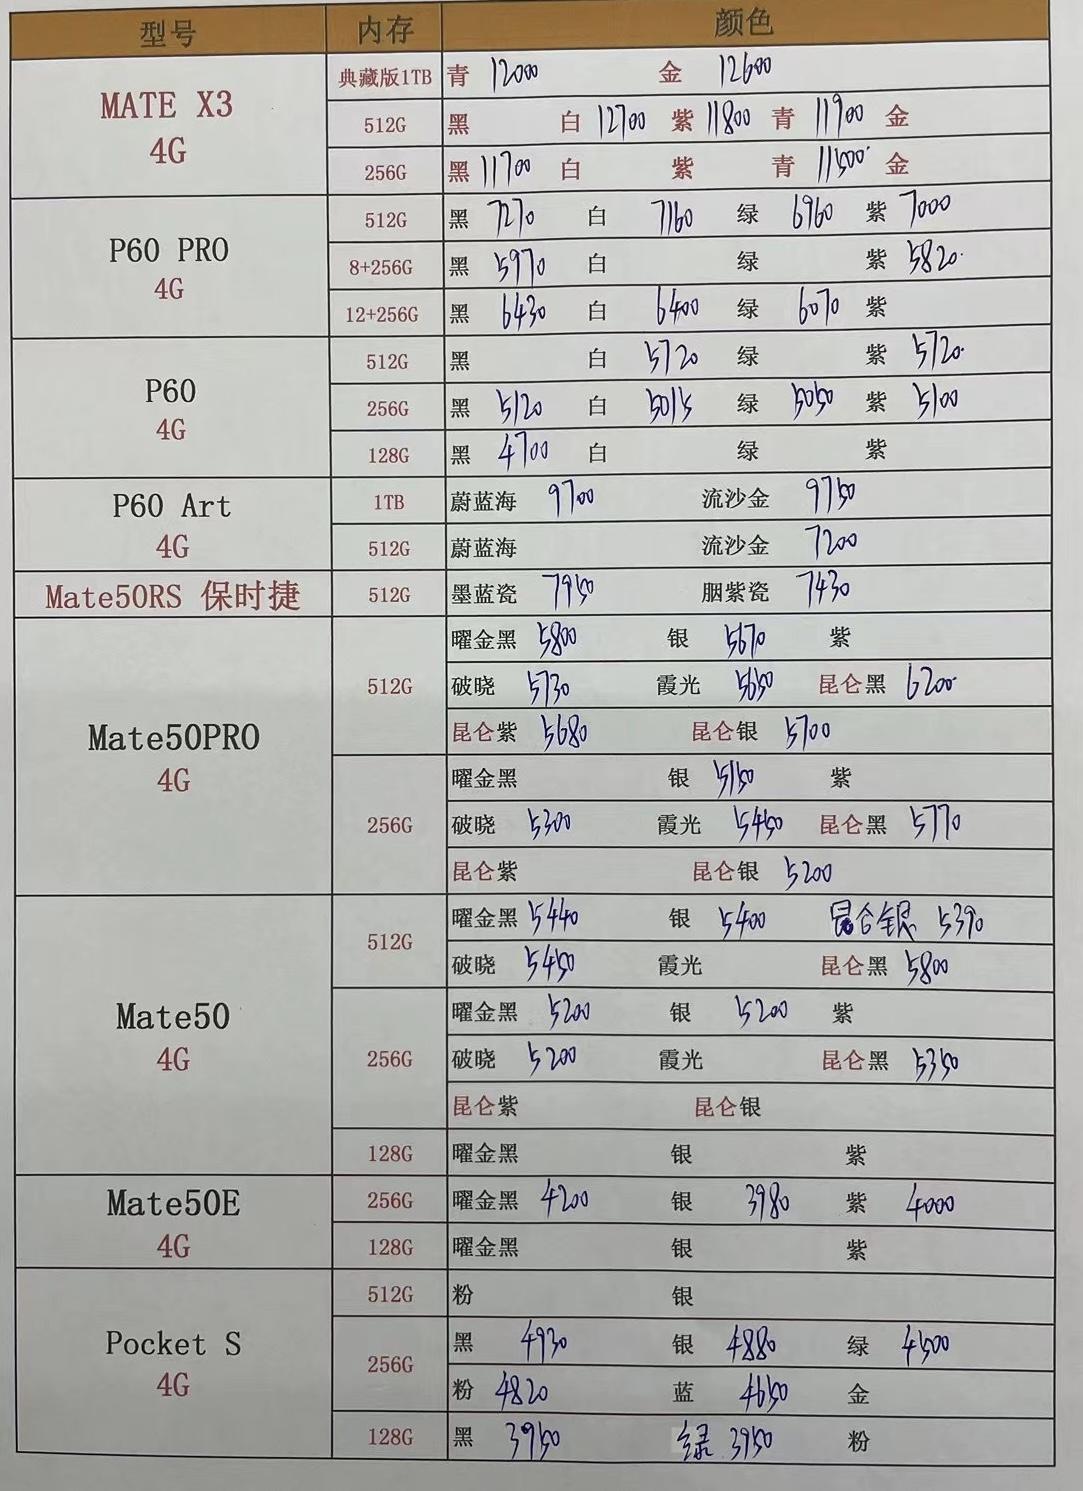 型号 内存 颜色
典藏版1TB 青 12000 金 12600
MATE X3 4G
512G 黑 白 12700 紫 11800 青 11900 金
256G 黑 11700 白 紫 青 11500 金
P60 PRO 4G
512G 黑 7270 白 7160 绿 6960 紫 7000
8+256G 黑 5970 白 绿 紫 5820
12+256G 黑 6430 白 6400 绿 6070 紫
P60 4G
512G 黑 白 5720 绿 紫 5720
256G 黑 5120 白 5015 绿 5050 紫 5100
128G 黑 4700 白 绿 紫
P60 Art 4G
1TB 蔚蓝海 9700 流沙金 9750
512G 蔚蓝海 流沙金 7200
Mate50RS 保时捷 512G 墨蓝瓷 7950 胭紫瓷 7430
Mate50PRO 4G
512G 曜金黑 5800 银 5670 紫
破晓 5730 霞光 5650 昆仑黑 6200
昆仑紫 5680 昆仑银 5700
256G 曜金黑 银 5150 紫
破晓 5300 霞光 5450 昆仑黑 5770
昆仑紫 昆仑银 5200
Mate50 4G
512G 曜金黑 5440 银 5400 昆仑银 5390
破晓 5450 霞光 昆仑黑 5800
256G 曜金黑 5200 银 5200 紫
破晓 5200 霞光 昆仑黑 5350
昆仑紫 昆仑银
128G 曜金黑 银 紫
Mate50E 4G
256G 曜金黑 4200 银 3980 紫 4000
128G 曜金黑 银 紫
Pocket S 4G
512G 粉 银
256G 黑 4930 银 4880 绿 4500
粉 4820 蓝 4650 金
128G 黑 3950 绿 3950 粉